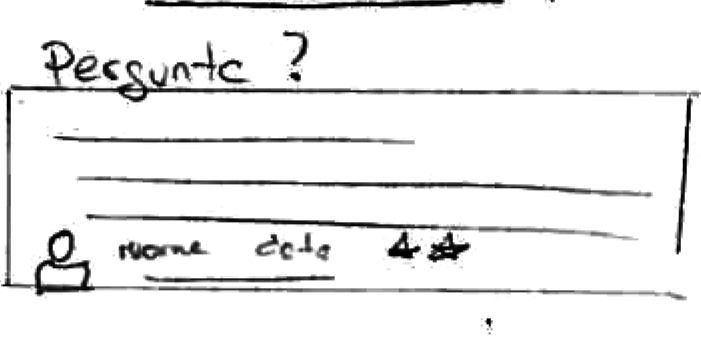 Pergunta ?
Nome data